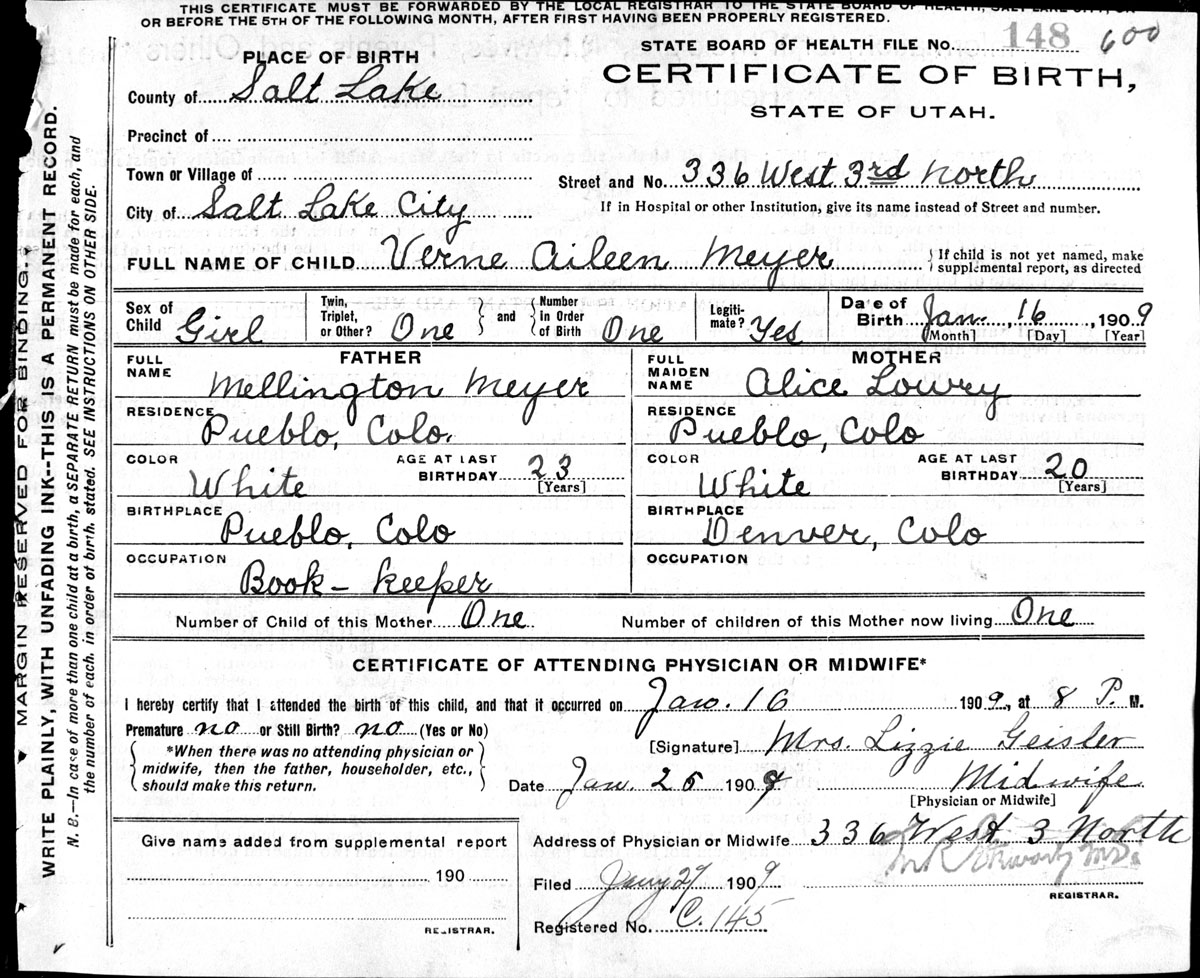 THIS CERTIFICATE MUST BE FORWARDED BY THE LOCAL REGISTRAR TO THE STATE BOARD OF HEALTH, SALT LAKE CITY, ON
OR BEFORE THE 5TH OF THE FOLLOWING MONTH, AFTER FIRST HAVING BEEN PROPERLY REGISTERED.
STATE BOARD OF HEALTH FILE No. 148 600
CERTIFICATE OF BIRTH,
STATE OF UTAH.
PLACE OF BIRTH
County of Salt Lake
Precinct of
Town or Village of
City of Salt Lake City
Street and No. 336 West 3rd North
If in Hospital or other Institution, give its name instead of Street and number.
FULL NAME OF CHILD Verne Aileen Meyer { If child is not yet named, make
supplemental report, as directed
Sex of Child Girl
Twin, Triplet, or Other? One } and { Number in Order of Birth One
Legiti-mate? Yes
Date of Birth Jan. 16, 1909
[Month] [Day] [Year]
FATHER
FULL NAME Mellington Meyer
RESIDENCE Pueblo, Colo.
COLOR White
AGE AT LAST BIRTHDAY 23
[Years]
BIRTHPLACE Pueblo, Colo
OCCUPATION Book-keeper
MOTHER
FULL MAIDEN NAME Alice Lowry
RESIDENCE Pueblo, Colo
COLOR White
AGE AT LAST BIRTHDAY 20
[Years]
BIRTHPLACE Denver, Colo
OCCUPATION
Number of Child of this Mother One
Number of children of this Mother now living One
CERTIFICATE OF ATTENDING PHYSICIAN OR MIDWIFE*
I hereby certify that I attended the birth of this child, and that it occurred on Jan. 16 1909, at 8 P. M.
Premature no or Still Birth? no (Yes or No)
{ *When there was no attending physician or
midwife, then the father, householder, etc.,
should make this return. }
[Signature] Mrs. Lizzie Geisler
Date Jan. 26 1909 Midwife
[Physician or Midwife]
Give name added from supplemental report
190
REGISTRAR.
Address of Physician or Midwife 336 West 3 North
Filed Jany 27 1909
REGISTRAR.
Registered No. C. 145
MARGIN RESERVED FOR BINDING.
WRITE PLAINLY, WITH UNFADING INK--THIS IS A PERMANENT RECORD.
N. B.—In case of more than one child at a birth, a SEPARATE RETURN must be made for each, and
the number of each, in order of birth, stated. SEE INSTRUCTIONS ON OTHER SIDE.